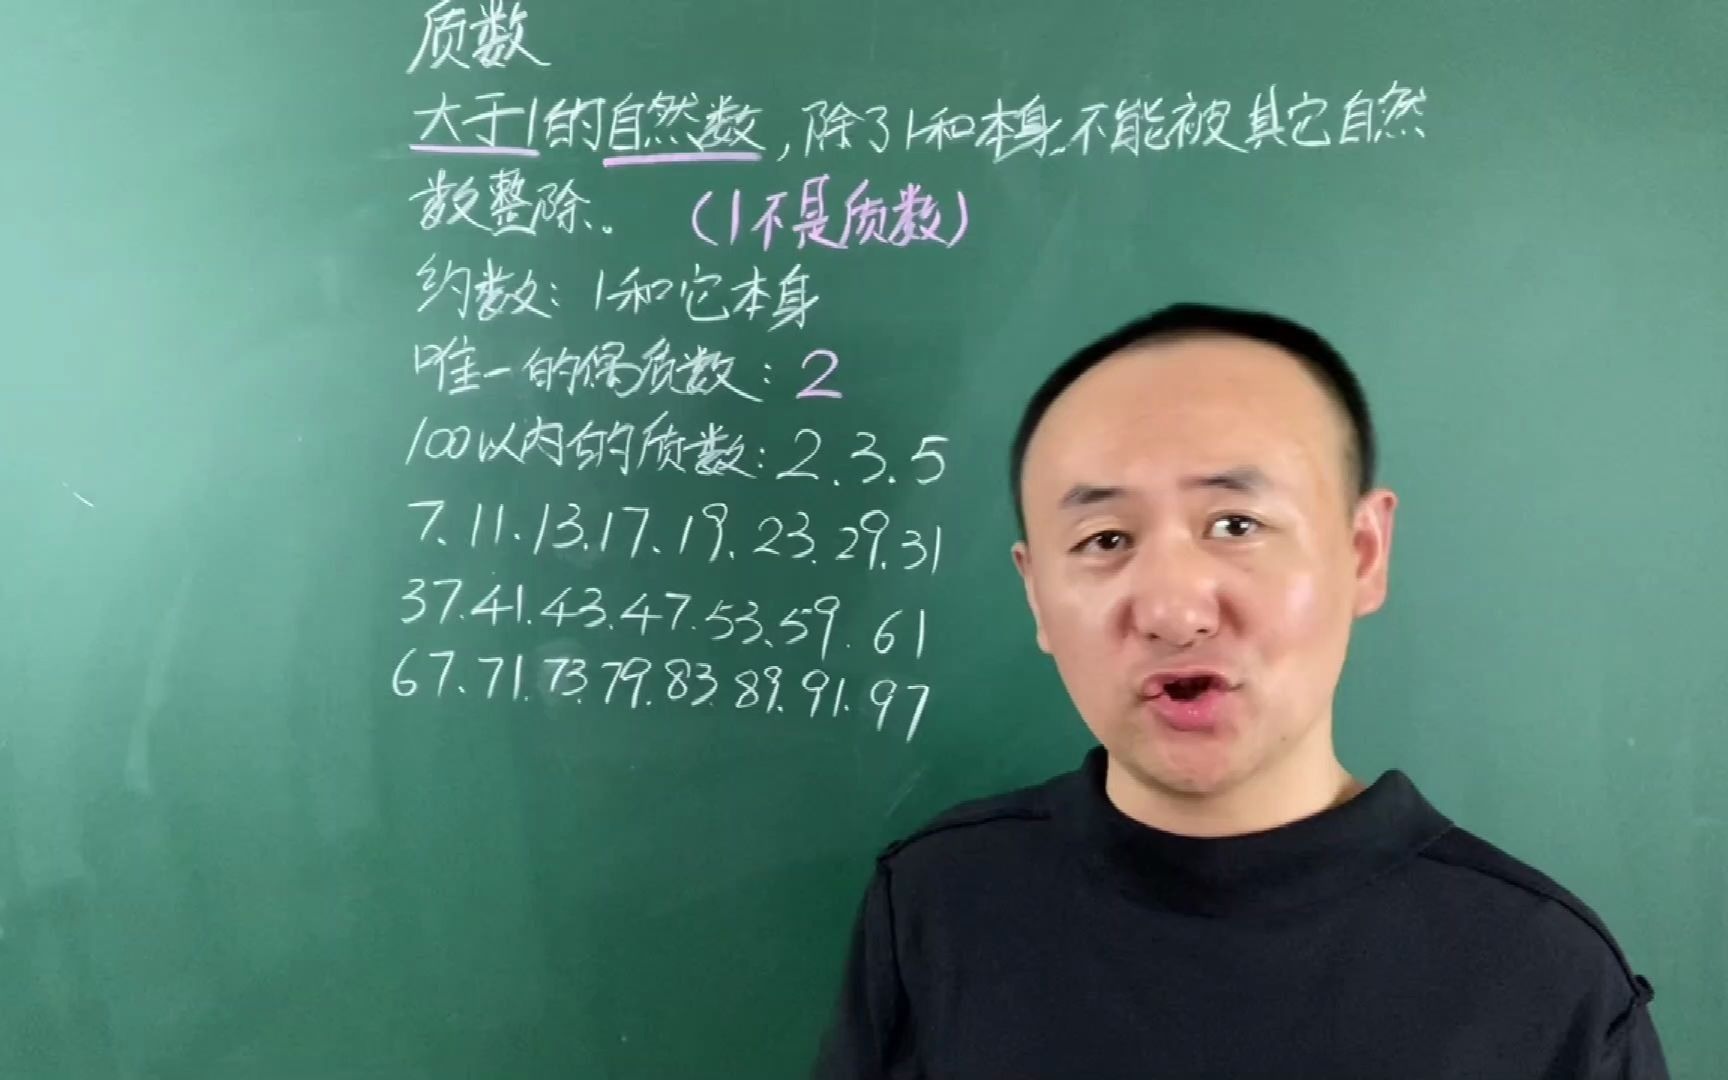 质数
大于1的自然数，除了1和本身，不能被其它自然
数整除。（1不是质数）
约数：1和它本身
唯一的偶质数：2
100以内的质数：2.3.5
7.11.13.17.19.23.29.31
37.41.43.47.53.59.61
67.71.73.79.83.89.91.97